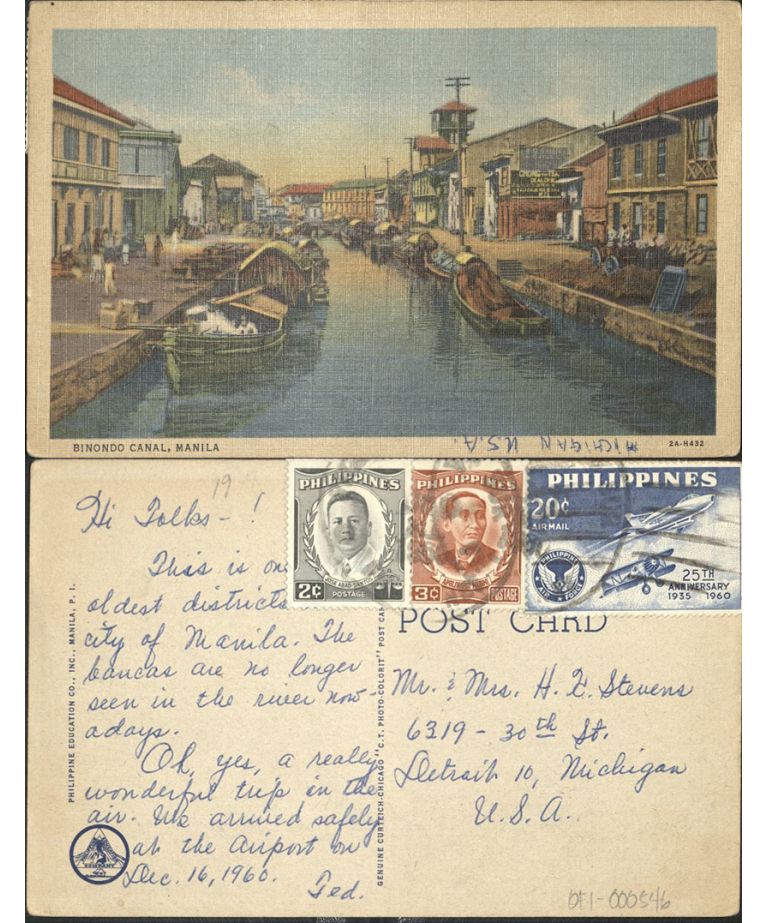 BINONDO CANAL, MANILA
MICHIGAN U.S.A.
2A-H432
19
Hi Folks - !
This is on
oldest districts
city of Manila. The
bancas are no longer
seen in the river now-
adays.
Oh, yes, a really
wonderful trip in the
air. We arrived safely
at the Airport on
Dec. 16, 1960.
Ted.
PHILIPPINE EDUCATION CO., INC., MANILA, P. I.
GENUINE CURTEICH-CHICAGO "C. T. PHOTO-COLORIT" POST CAR
PHILIPPINES
2¢
POSTAGE
PHILIPPINES
3¢
POSTAGE
PHILIPPINES
20¢
AIRMAIL
PHILIPPINE
AIR FORCE
25TH
ANNIVERSARY
1935 1960
POST CARD
Mr. & Mrs. H. F. Stevens
6319 - 30th St.
Detroit 10, Michigan
U.S.A.
OFI-000546